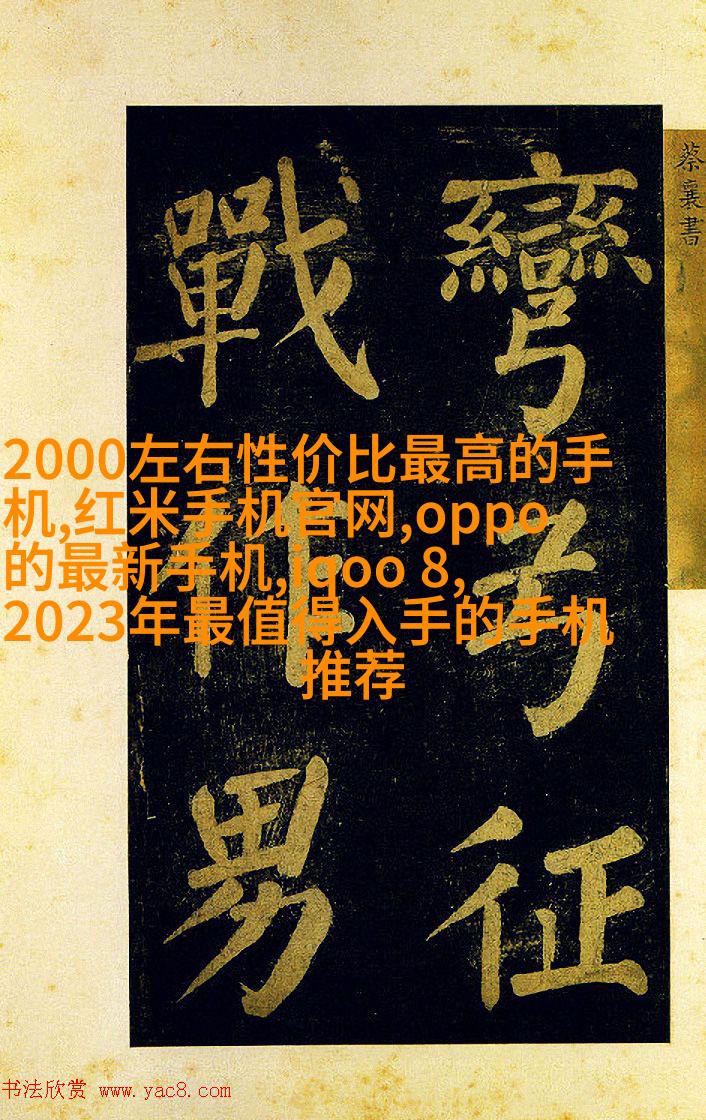 蔡襄書
彎弓征
戰作男
2000左右性价比最高的手
机,红米手机官网,oppo
的最新手机,iqoo 8,
2023年最值得入手的手机
推荐
书法欣赏 www.yac8.com